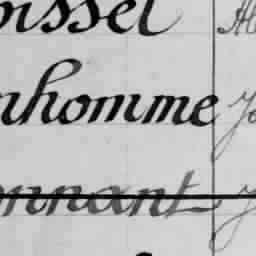 oissel
nhomme
onnant